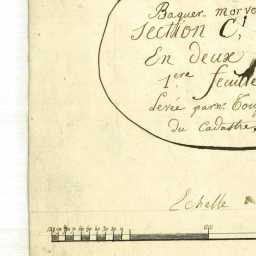 Baguer morvo
Section C,
En deux
1ere feuille
Levée par Mr
du Cadastre
Echelle